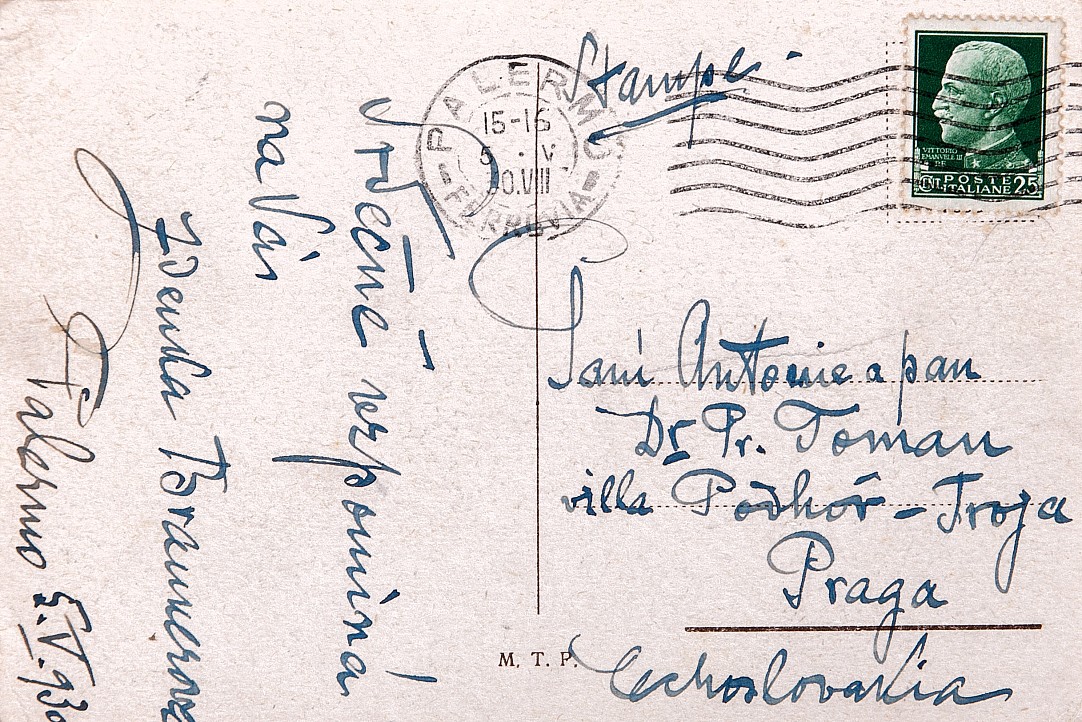 Srdečně vzpomíná
na Vás
Zdenka Braunerová
Palermo 5.V.930
Stampe
PALERMO
15-16
5 · V
30.VIII
FERROVIA
VITTORIO
EMANVELE III
POSTE
ITALIANE 25
Paní Antonie a pan
Dr Pr. Toman
villa Podhoř - Troja
Praga
Cechoslovakia
M. T. P.